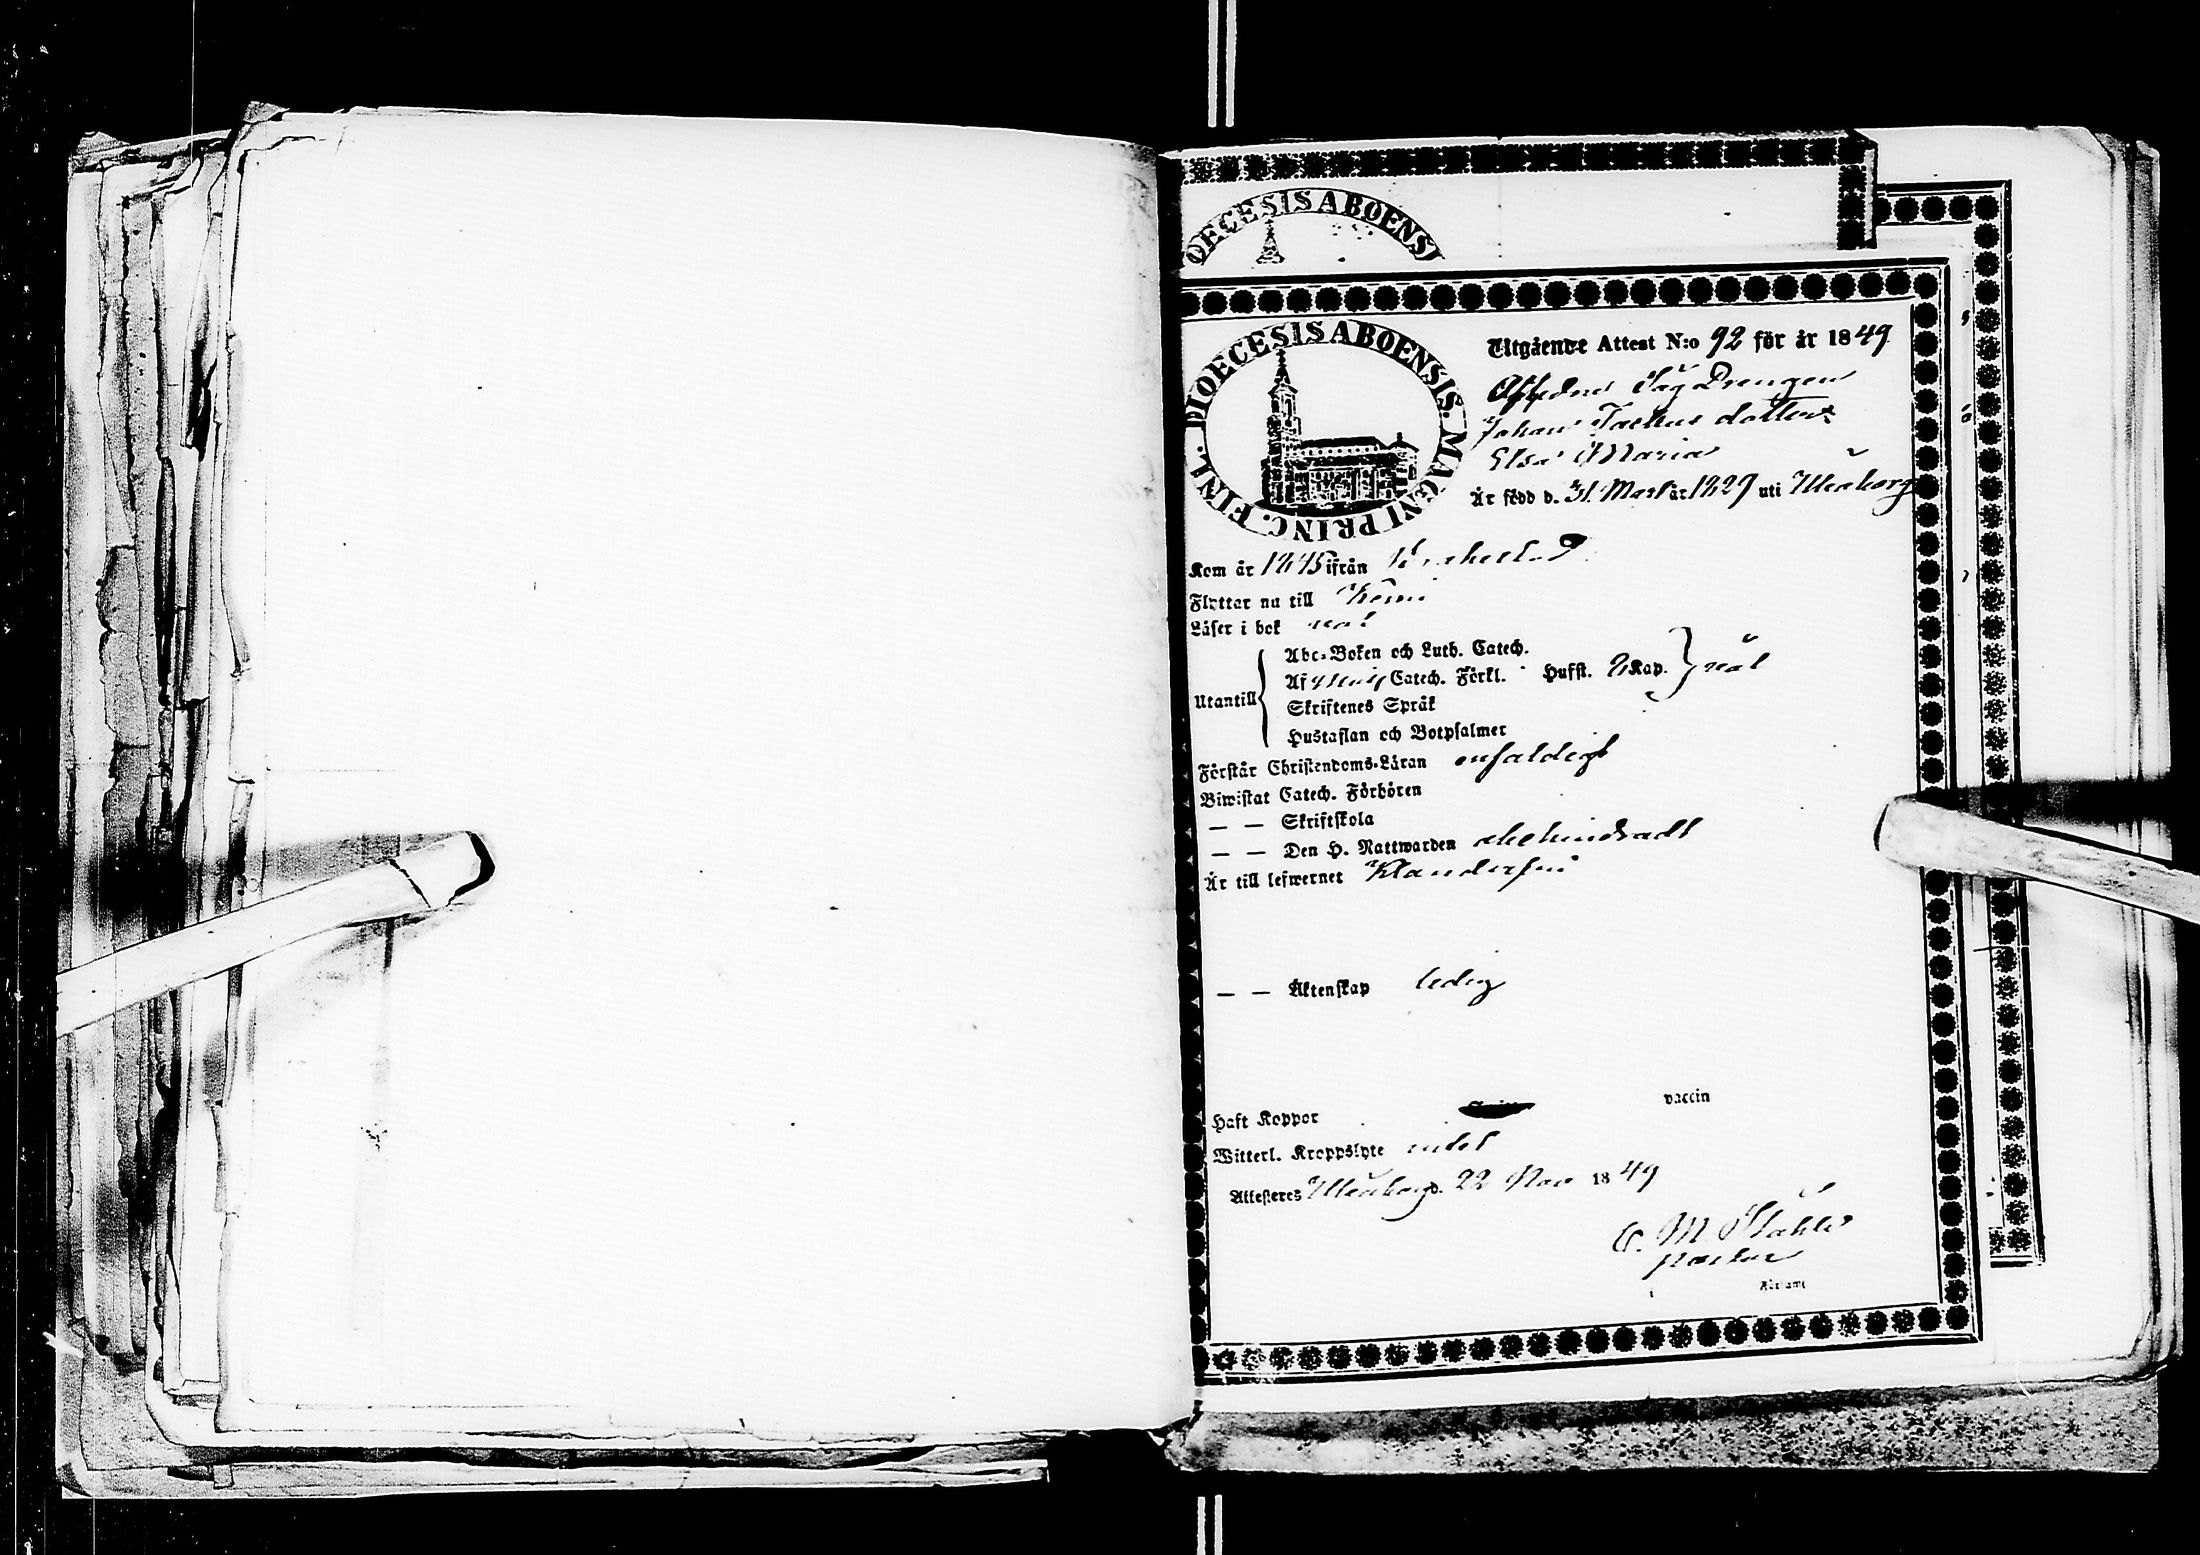 DIOECESIS ABOENSI
DIOECESIS ABOENSIS. MAGNI PRINC. FINL.
Utgående Attest N:o 92 för år 1849
Afledne Såg Drengen
Johan dotter
Elsa Maria
Är född d. 31 Mars år 1829 uti Uleåborg
Kom år 1845 ifrån Brahestad
Flyttar nu till Kemi
Läser i bok nöl
Utantill
Abc-Boken och Luth. Catech.
Af Catech. Förkl. Hufst. 2 Kap. nöl
Skriftenes Språk
Hustaflan och Botpsalmer
Förstår Christendoms-Läran enfaldigt
Biwistat Catech. Förhören
— — Skriftskola
— — Den H. Nattwarden obehindradt
Är till lefwernet Klanderfri
— — Äktenskap ledig
Haft Koppor vaccin
Witterl. Kroppslyte intet
Attesteres Uleåborg d. 22 Nov 1849
C. M Ståhle
pastor